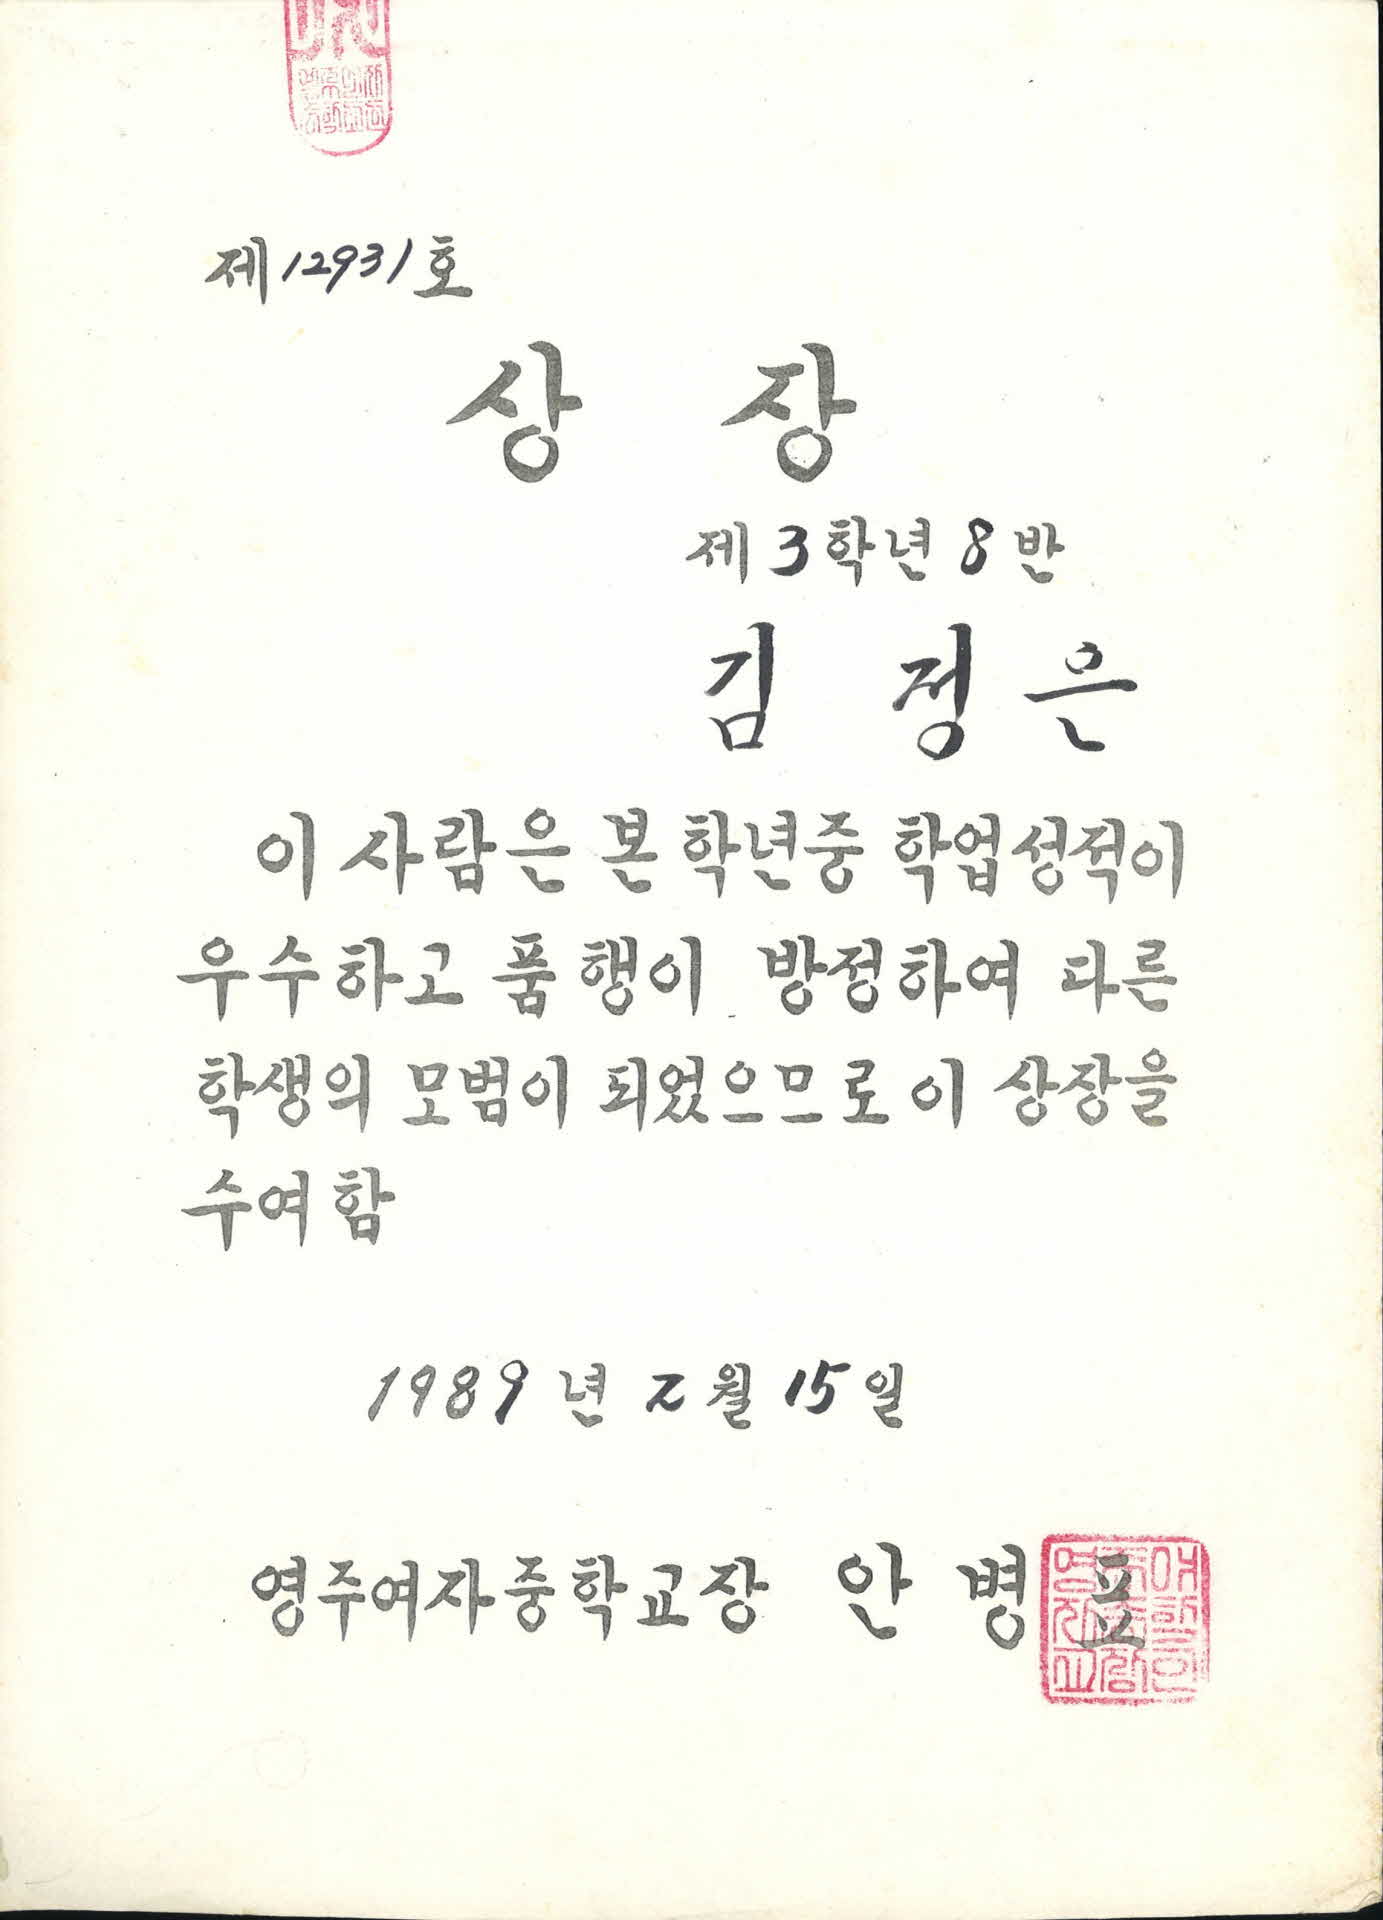 제12931호
상 장
제3학년8반
김 정은
이 사람은 본 학년중 학업성적이
우수하고 품행이 방정하여 다른
학생의 모범이 되었으므로 이 상장을
수여함
1989년 2월 15일
영주여자중학교장 안병표